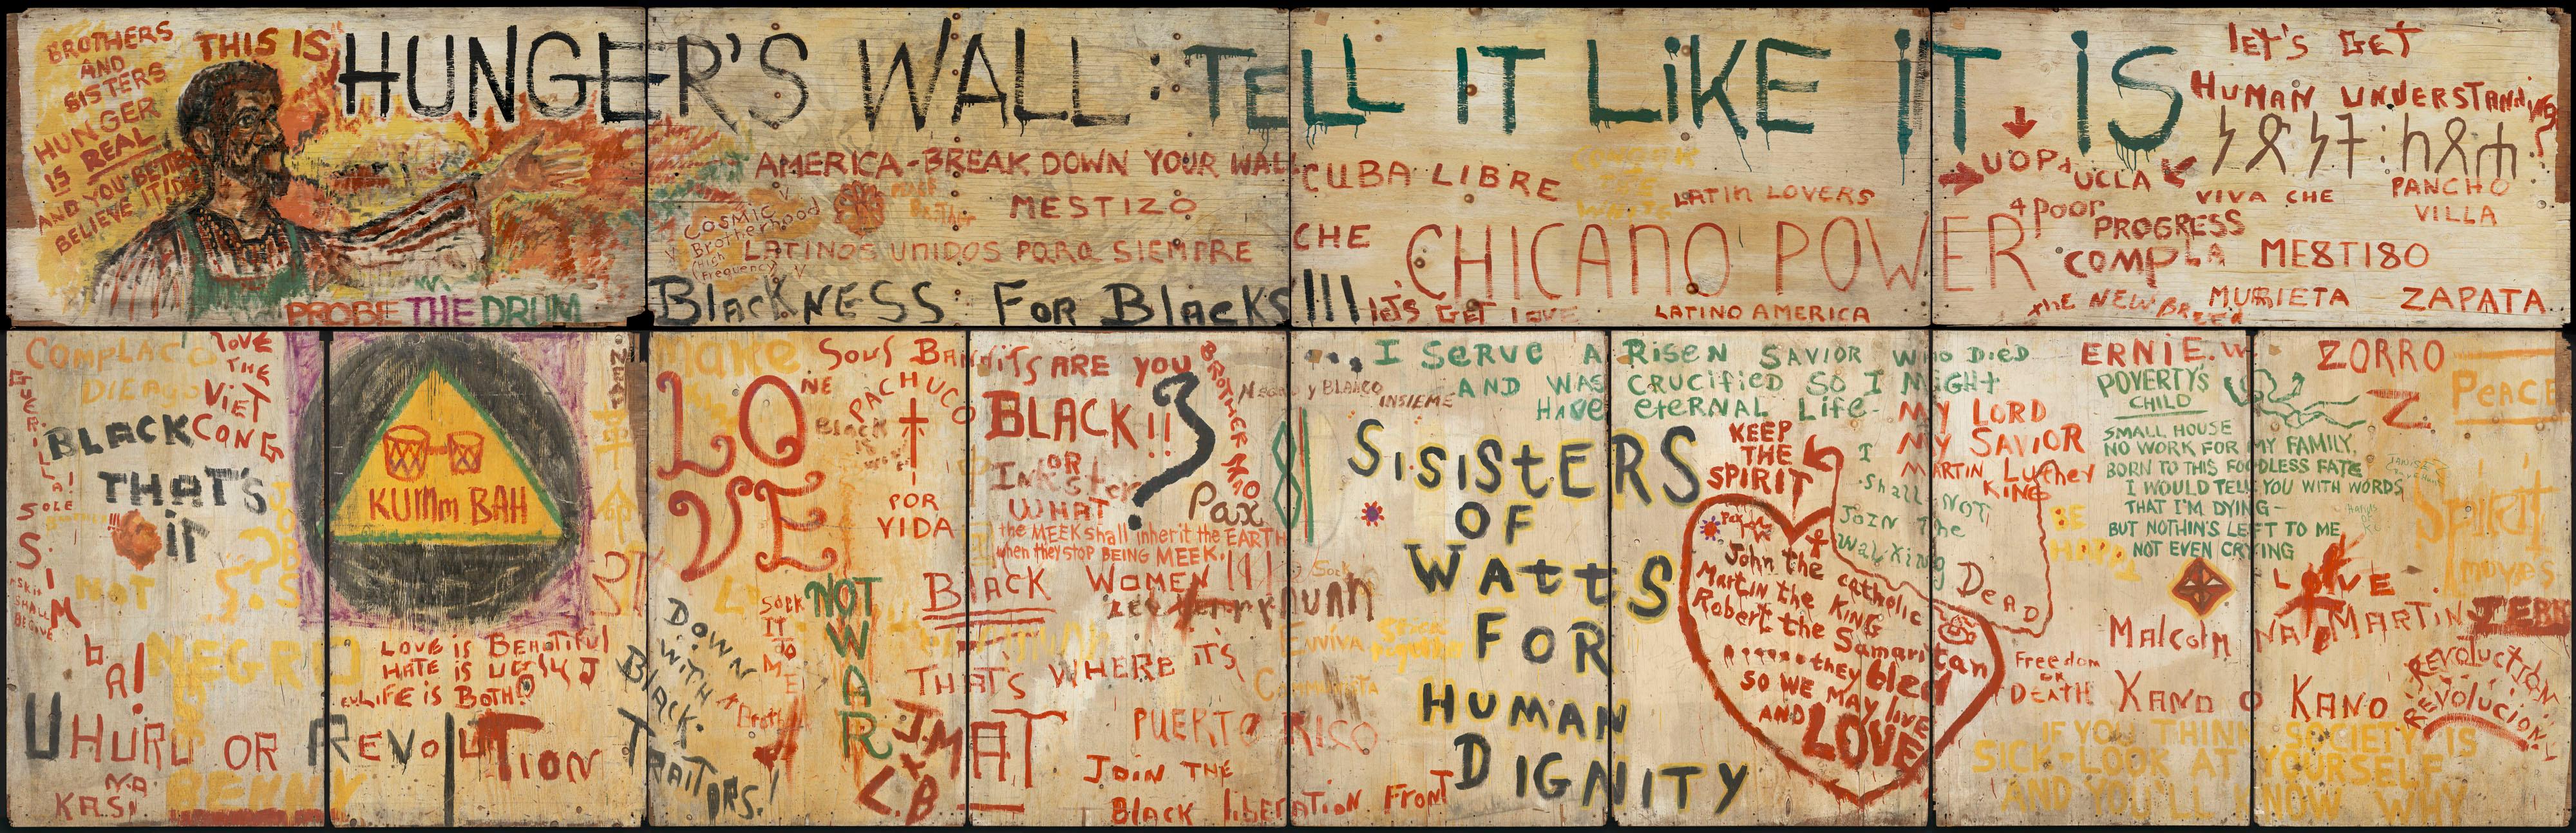 BROTHERS
AND
SISTERS
HUNGER
IS REAL
AND YOU BETTER
BELIEVE IT!
THIS IS
HUNGER'S WALL: TELL IT LIKE IT IS
PROBE THE DRUM
AMERICA-BREAK DOWN YOUR WALL
COSMIC
Brotherhood
(High
Frequency)
MESTIZO
LATINOS UNIDOS PARA SIEMPRE
BlackNESS For BlackS!!!
CUBA LIBRE
LATIN LOVERS
CHE
CHICANO POWER
let'S GET lOVE
LATINO AMERICA
let's GET
HUMAN UNDERSTANDING
UOP
UCLA
4 Poor
PROGRESS
COMPLA
VIVA CHE
PANCHO
VILLA
ME8TI80
the NEW BREED
MURIETA
ZAPATA
COMPLACO
DIEAGO
LOVE
THE
VIET
CONG
GUERILLA!
SOLE
BLACK
THAT'S
iT
NOT
JOBS
NEGRO
S.I.M
bA!
KUMm BAH
LOVE iS BEAUTIFUL
HATE iS UGLY
LIFE iS BOTH!
UHURU OR REVOLUTION
NA
KASI
BENNY
make
LOVE
NOT
WAR
Soul Bandits
PACHUCO
POR
VIDA
SOCK
IT
TO
ME
DOWN
WITH
BLACK
TRAITORS!
J.M
+
L.B
ARE YOU
BLACK!!
OR
WHAT
?
BROTHER
Pax
the MEEK shall inherit the EARTH
when they stop BEING MEEK!
BLACK WOMEN!!!
THATS WHERE iT'S
AT
PUERTO RICO
JOIN THE
BLACK liberATION FRONT
NEGRO y BLANCO
INSIEME
I SERVE A RISEN SAVIOR WHO DIED
AND WAS CRUCIFIED SO I MIGHT
HAVE eTERNAL LIFE
SISISTERS
OF
WATTS
FOR
HUMAN
DIGNITY
KEEP
THE
SPIRIT
John the catholic
Martin the KING
Robert the Samaritan
they bled
SO WE MAY LIVE
AND LOVE
MY LORD
MY SAVIOR
MARTIN Luthey
KING
I
Shall NOT
JOIN The
Walking
DeAD
ERNIE.W
POVERTY'S
CHILD
SMALL HOUSE
NO WORK FOR MY FAMILY,
BORN TO THIS FOODLESS FATE
I WOULD TELL YOU WITH WORDS
THAT I'M DYING-
BUT NOTHIN'S LEFT TO ME
NOT EVEN CRYING
BE
HAPPY
Malcolm
Freedom
OR
DEATH
KANO
KANO
ZORRO
Z
PeacE
Spirit
moves
LOVE
MARTIN
REVOLUCTION
REVOLUCION!
IF YOU THINK SOCIETY IS
SICK-LOOK AT YOURSELF
AND YOU'LL KNOW WHY